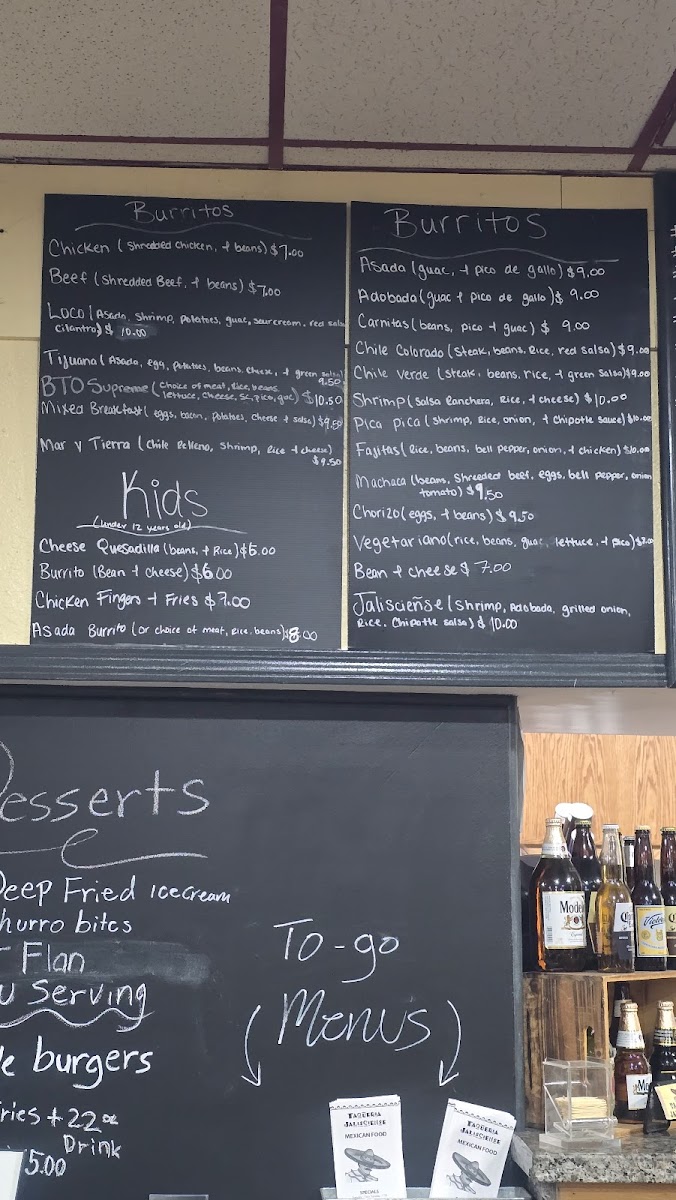 Burritos
Chicken (Shredded Chicken, + beans) $7.00
Beef (Shredded Beef, + beans) $7.00
Loco (Asada, Shrimp, Potatoes, guac, sour cream, red salsa
cilantro) $ 10.00
Tijuana (Asada, egg, Potatoes, beans, cheese, + green salsa)
9.50
BTO Supreme (Choice of meat, Rice, beans,
lettuce, cheese, SC, pico, guac) $10.50
Mixed Breakfast (eggs, bacon, potatoes, cheese + salsa) $9.50
Mar y Tierra (Chile Relleno, Shrimp, Rice + cheese)
$9.50
Kids
(Under 12 years old)
Cheese Quesadilla (beans, + Rice) $6.00
Burrito (Bean + cheese) $6.00
Chicken Fingers + Fries $7.00
Asada Burrito (or choice of meat, Rice, beans) $8.00
Burritos
Asada (guac, + pico de gallo) $9.00
Adobada (guac + pico de gallo) $ 9.00
Carnitas (beans, pico + guac) $ 9.00
Chile Colorado (Steak, beans, Rice, red salsa) $9.00
Chile Verde (Steak, beans, rice, + green Salsa) $9.00
Shrimp (Salsa Ranchera, Rice, + cheese) $10.00
Pica pica (Shrimp, Rice, onion, + Chipotle Sauce) $10.00
Fajitas (Rice, beans, bell pepper, onion, + chicken) $10.00
Machaca (beans, Shreeded beef, eggs, bell pepper, onion
tomato) $9.50
Chorizo (eggs, + beans) $ 9.50
Vegetariano (rice, beans, guac, lettuce, + pico) $7.00
Bean + cheese $ 7.00
Jalisciense (Shrimp, Adobada, grilled onion,
Rice, Chipotle Salsa) $ 10.00
Desserts
Deep Fried icecream
hurro bites
Flan
u Serving
burgers
ries + 22oz
Drink
5.00
To-go
Menus
TAQUERIA
JALISCIENSE
MEXICAN FOOD
SPECIALS
TAQUERIA
JALISCIENSE
MEXICAN FOOD
Modelo
Victoria